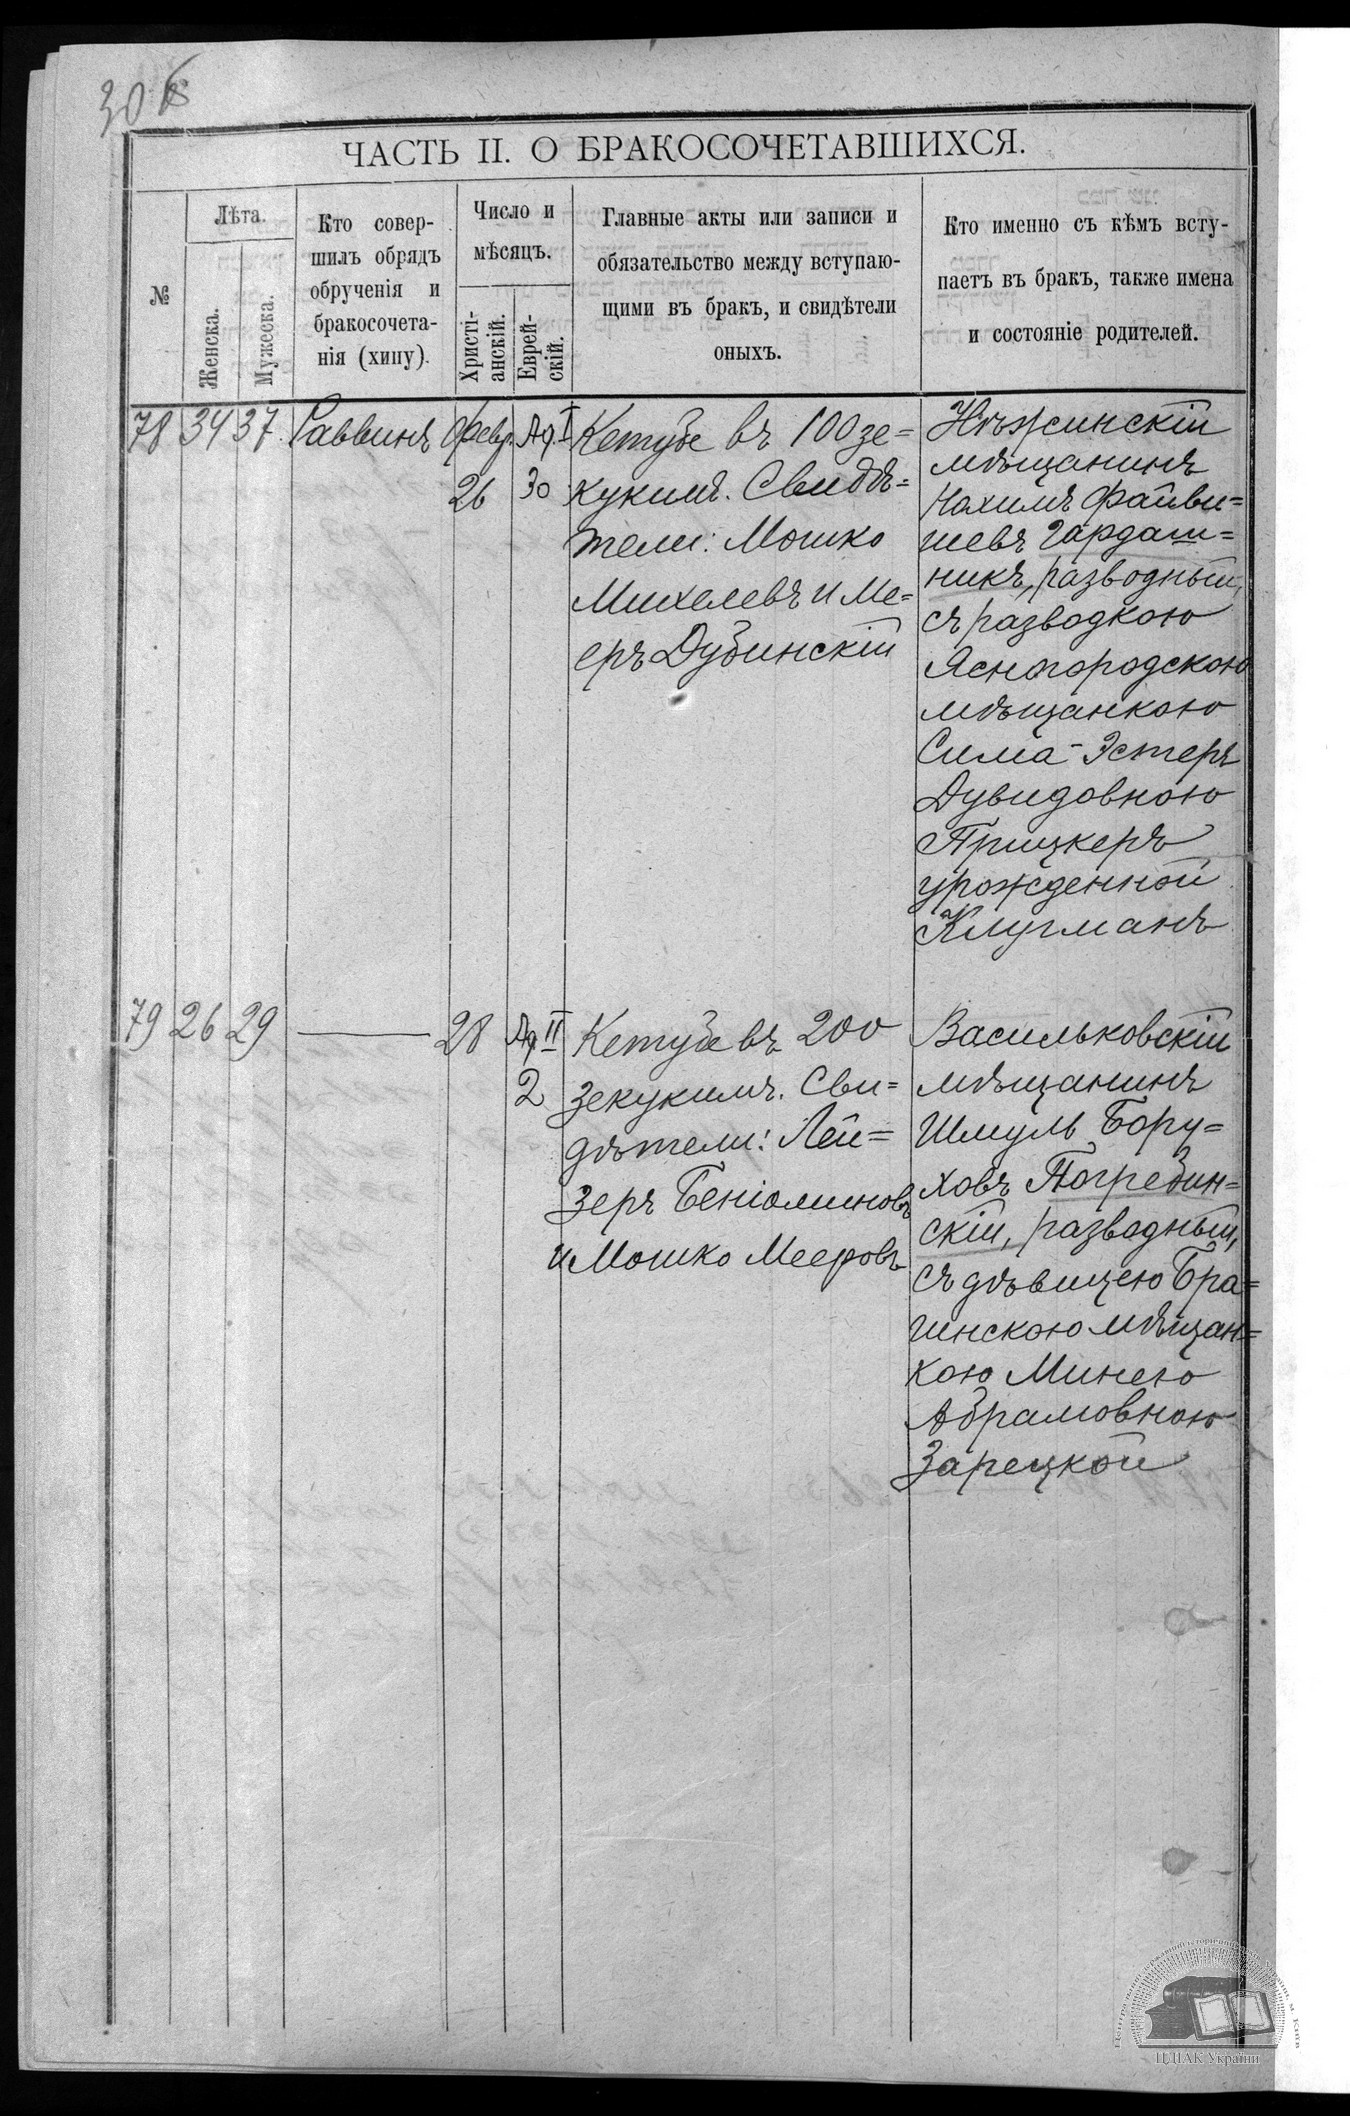 30
ЧАСТЬ II. О БРАКОСОЧЕТАВШИХСЯ.
№
Лѣта.
Женска.
Мужеска.
Кто совер-
шилъ обрядъ
обрученія и
бракосочета-
нія (хипу).
Число и
мѣсяцъ.
Христі-
анскій.
Еврей-
скій.
Главные акты или записи и
обязательство между вступаю-
щими въ бракъ, и свидѣтели
оныхъ.
Кто именно съ кѣмъ всту-
паетъ въ бракъ, также имена
и состояніе родителей.
78 34 37 Раввинъ Февр. 26 Ад I 30
Кетубе въ 100 зе=
кукимъ. Свидѣ=
тели: Мошко
Михелевъ и Ме=
еръ Дубинскій
Нѣжинскій
мѣщанинъ
Нахимъ Файви=
шевъ Гардаш=
никъ, разводный,
съ разводкою
Ясногородскою
мѣщанкою
Сима-Эстеръ
Дувидовною
Прицкеръ
урожденной
Клугманъ
79 26 29 — 28 Ад II 2
Кетубе въ 200
зекукимъ. Сви=
дѣтели: Лей=
зеръ Беніоминовъ
и Мошко Мееровъ
Васильковскій
мѣщанинъ
Шмуль Бору=
ховъ Погребин=
скій, разводный,
съ дѣвицею Бра=
гинскою мѣщан=
кою Минею
Абрамовною
Зарецкой
ЦДІАК України